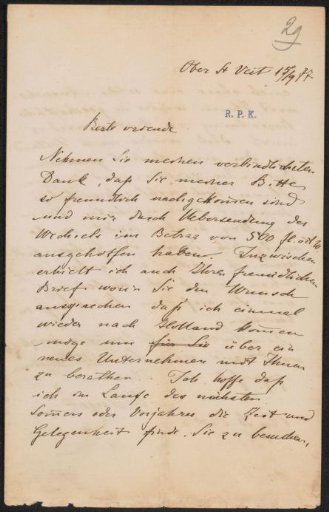 29
Ober St Veit 15/9 77
R. P. K.
Beste vriende
Nehmen Sie meinen verbindlichsten
Dank, daß Sie meiner Bitte
so freundlich nachgekommen sind
und mir durch Uebersendung des
Wechsels im Betrag von 500 fl
ausgeholfen haben. Inzwischen
erhielt ich auch Ihren freundlichen
Brief worin Sie den Wunsch
aussprechen daß ich einmal
wieder nach Holland kommen
möge um für Sie über ein
neues Unternehmen mit Ihnen
zu berathen. Ich hoffe daß
ich im Laufe des nächsten
Sommers oder Vorjahres die Zeit und
Gelegenheit finde, Sie zu besuchen,